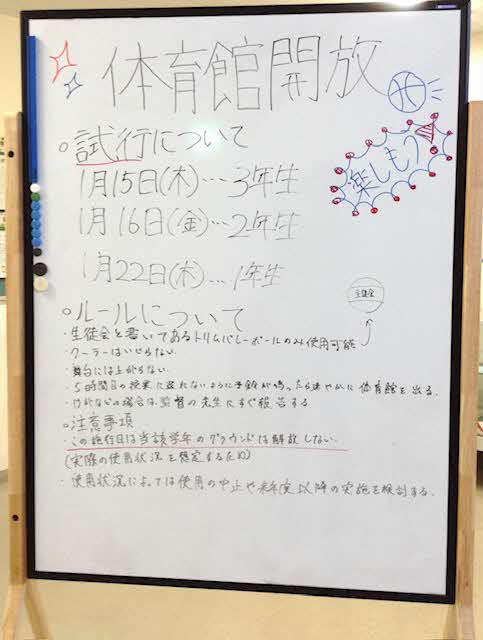 体育館開放
楽しもう
○試行について
1月15日(木)…3年生
1月16日(金)…2年生
1月22日(木)…1年生
○ルールについて
生徒会
・生徒会と書いてあるトリムバレーボールのみ使用可能
・クーラーはいじらない.
・舞台には上がらない.
・5時間目の授業に遅れないように予鈴が鳴ったら速やかに体育館を出る.
・けがなどの場合は監督の先生にすぐ報告する
○注意事項
・この施行日は当該学年のグラウンドは解放しない.
(実際の使用状況を想定するため)
・使用状況によっては使用の中止や来年度以降の実施を検討する.